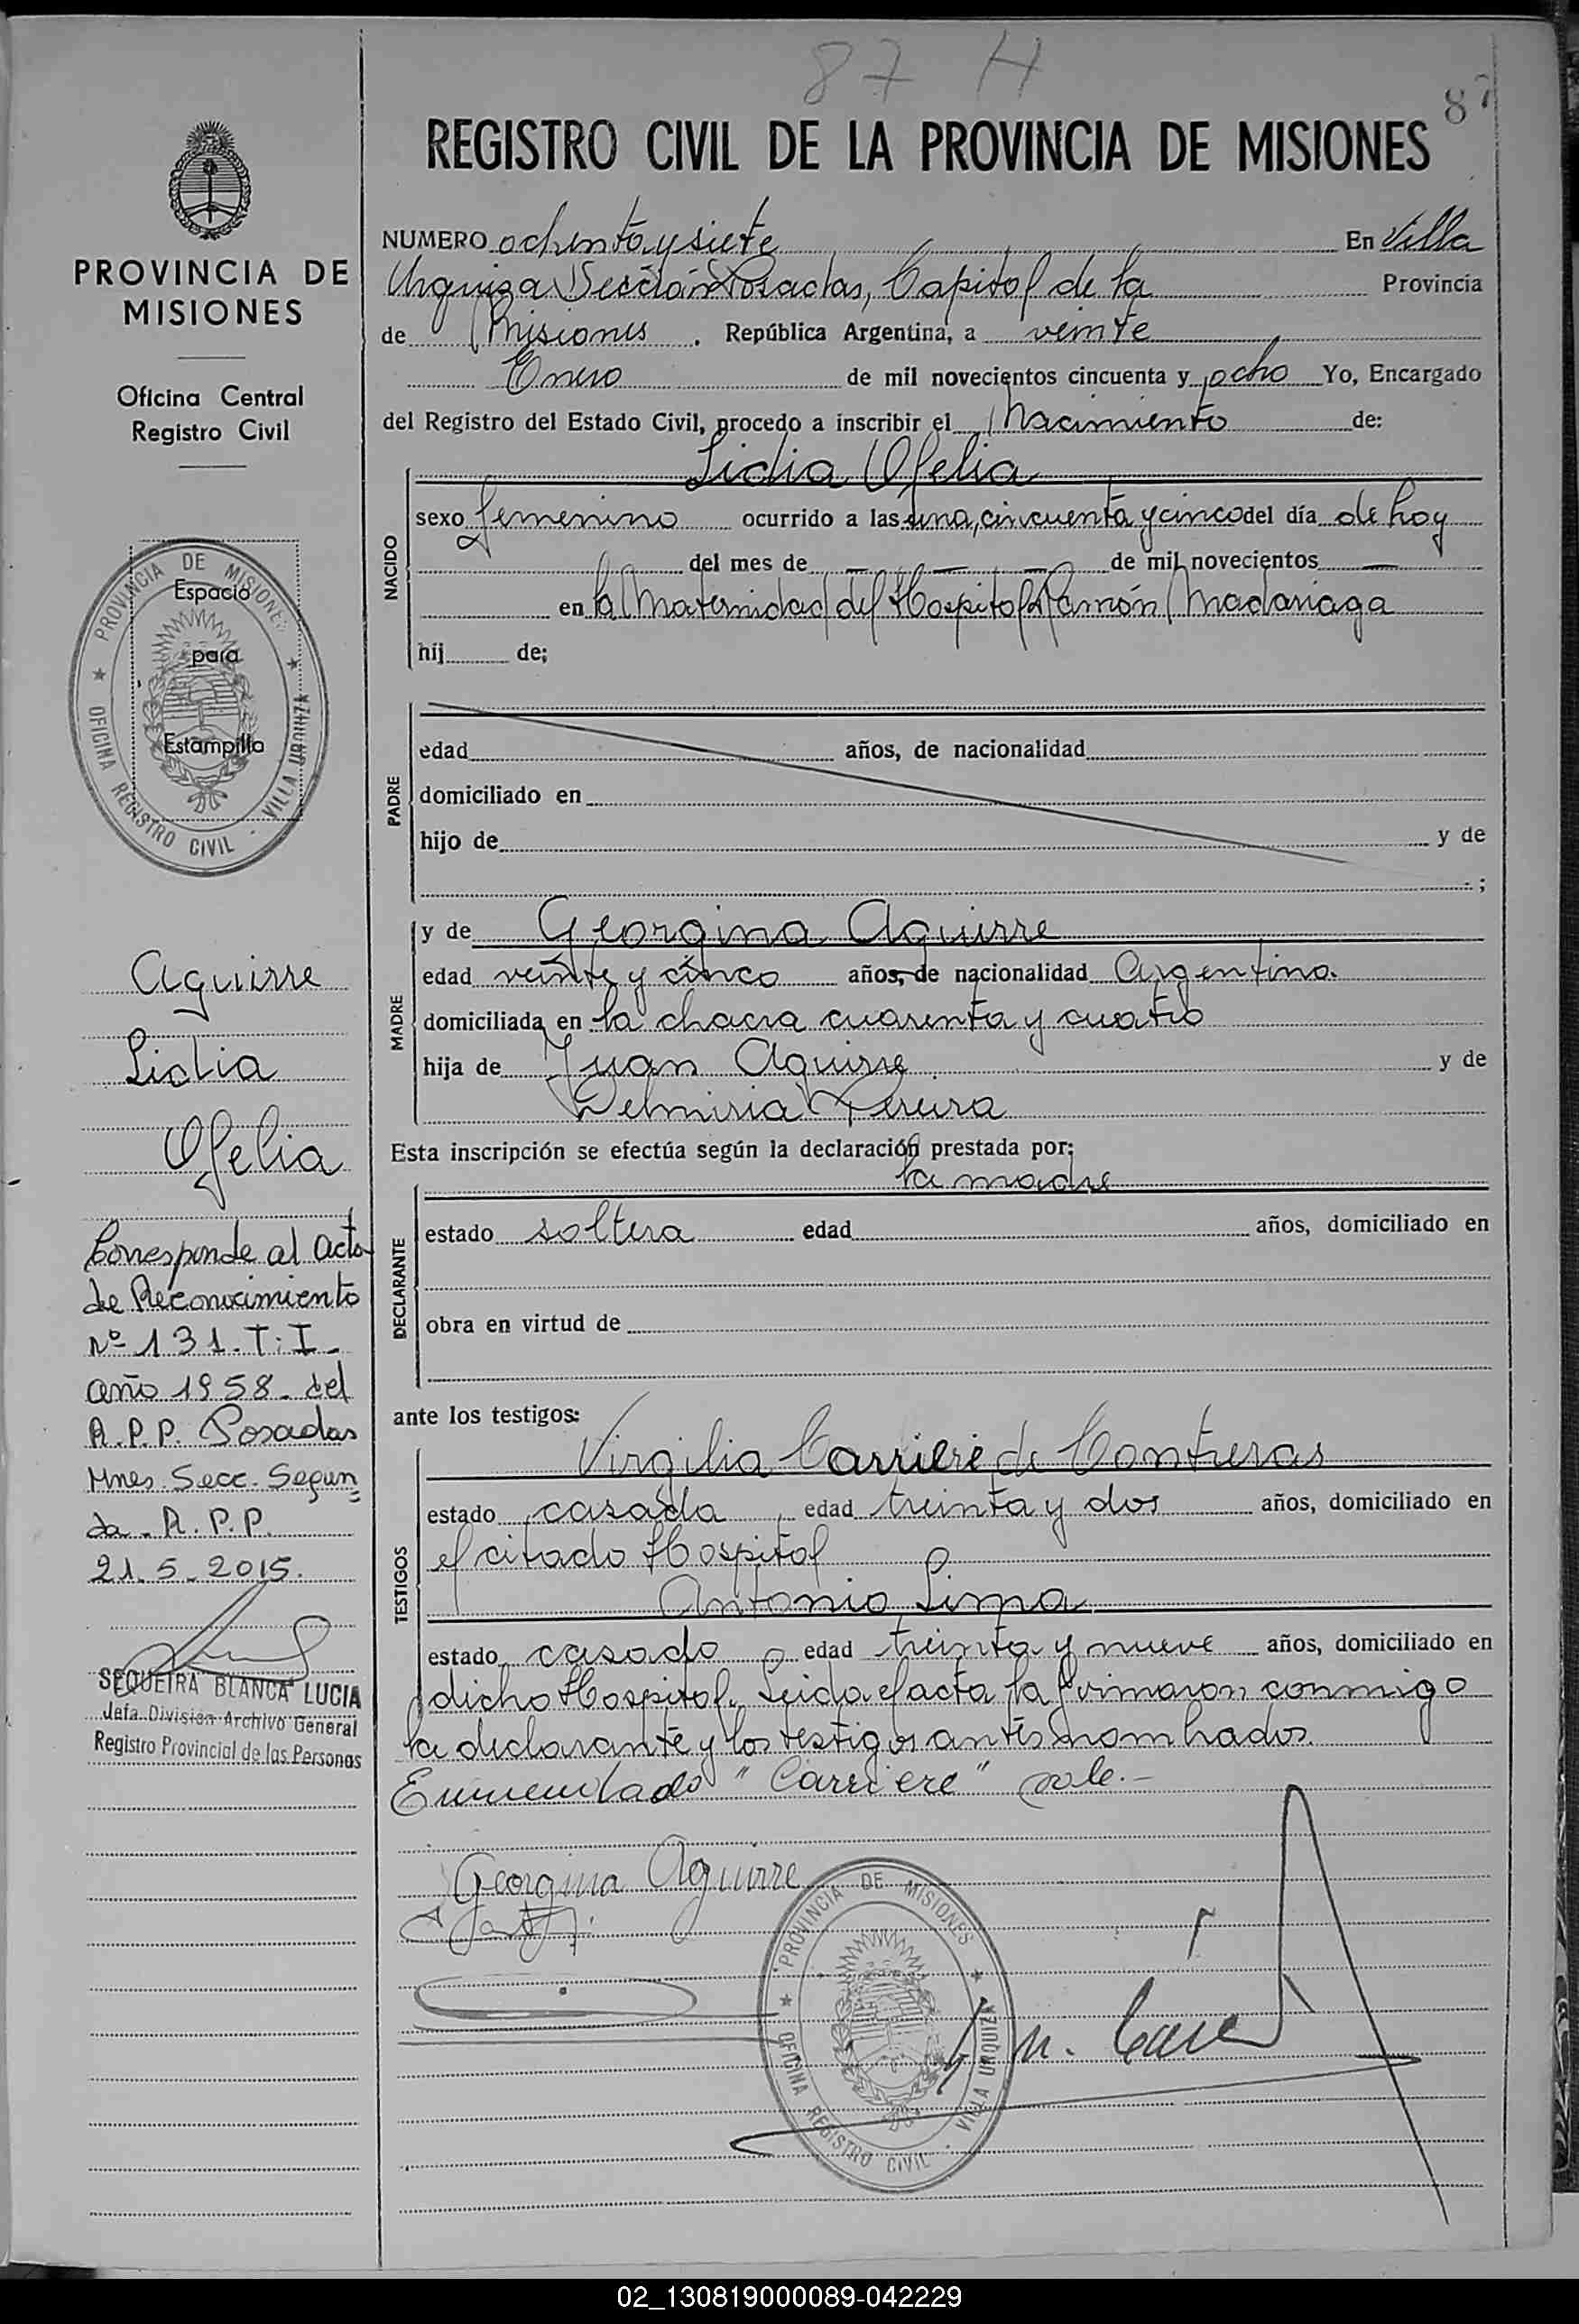 87 H
87
REGISTRO CIVIL DE LA PROVINCIA DE MISIONES
PROVINCIA DE
MISIONES
Oficina Central
Registro Civil
PROVINCIA DE MISIONES
Espacio
para
Estampilla
OFICINA REGISTRO CIVIL - VILLA URQUIZA
Aguirre
Lidia
Ofelia
Corresponde al acta
de Reconocimiento
Nº 131. T: I -
año 1958 - del
R.P.P. Posadas
Mnes. Secc. Segun=
da - R.P.P.
21-5-2015.
SEQUEIRA BLANCA LUCIA
Jefa División Archivo General
Registro Provincial de las Personas
NUMERO ochenta y siete En Villa
Urquiza Sección Posadas, Capital de la Provincia
de Misiones . República Argentina, a veinte
Enero de mil novecientos cincuenta y ocho Yo, Encargado
del Registro del Estado Civil, procedo a inscribir el Nacimiento de:
Lidia Ofelia
NACIDO
sexo femenino ocurrido a las una, cincuenta y cinco del día de hoy
del mes de — — — de mil novecientos —
en la Maternidad del Hospital Ramón Madariaga
hij de;
PADRE
edad años, de nacionalidad
domiciliado en
hijo de y de
;
MADRE
y de Georgina Aguirre
edad veinte y cinco años, de nacionalidad Argentina.
domiciliada en la chacra cuarenta y cuatro
hija de Juan Aguirre y de
Delmiria Pereira
Esta inscripción se efectúa según la declaración prestada por:
la madre
DECLARANTE
estado soltera edad años, domiciliado en
obra en virtud de
ante los testigos:
TESTIGOS
Virgilia Carriere de Contreras
estado casada edad treinta y dos años, domiciliado en
el citado Hospital
Antonio Lima
estado casado edad treinta y nueve años, domiciliado en
dicho Hospital. Leida el acta la firmaron conmigo
la declarante y los testigos antes nombrados.
Enmendado "Carriere" vale.-
Georgina Aguirre
PROVINCIA DE MISIONES
OFICINA REGISTRO CIVIL - VILLA URQUIZA
02_130819000089-042229